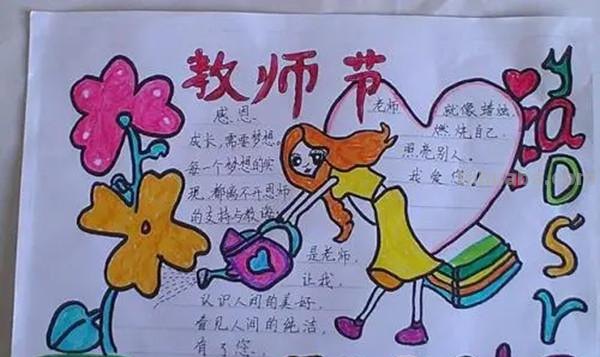 教师节
感恩
成长,需要梦想。
每一个梦想的实
现,都离不开恩师
的支持与教诲
老师 就像蜡烛,
燃烧自己,
照亮别人。
我爱您!
是老师,
让我,
认识人间的美好,
看见人间的纯洁,
有了您、
yaDsr